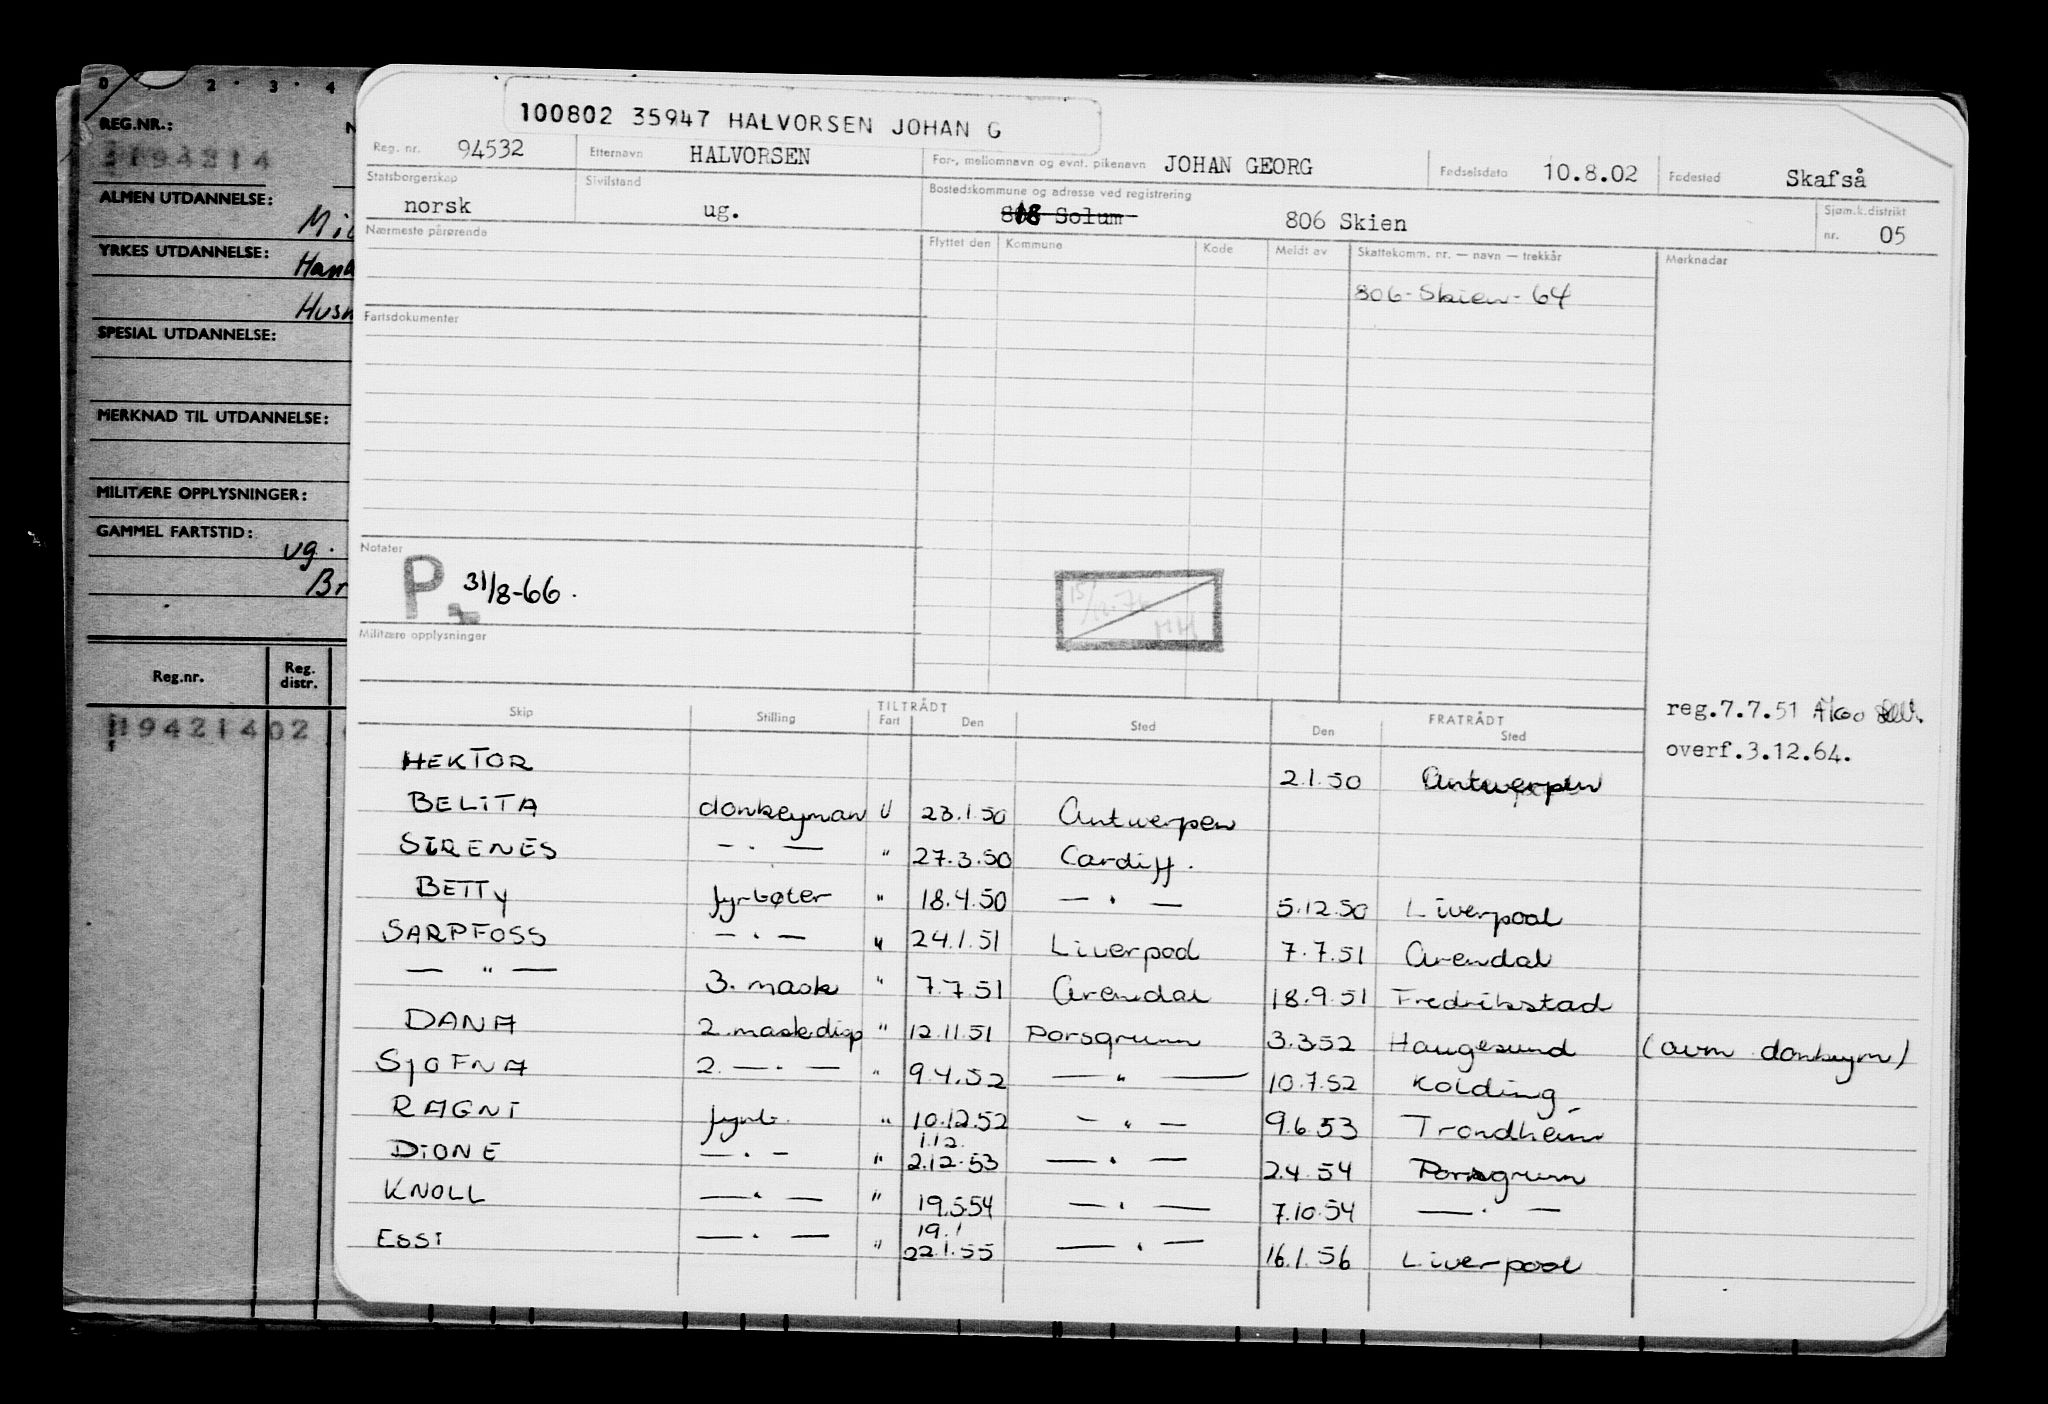 0 2 3 4
REG.NR.: N
ALMEN UTDANNELSE:
YRKES UTDANNELSE:
SPESIAL UTDANNELSE:
MERKNAD TIL UTDANNELSE:
MILITÆRE OPPLYSNINGER:
GAMMEL FARTSTID:
ug.
Br
Reg.nr. Reg. distr.
19421402
100802 35947 HALVORSEN JOHAN G
Reg. nr. 94532 Etternavn HALVORSEN For-, mellomnavn og evnt. pikenavn JOHAN GEORG Fødselsdato 10.8.02 Fødested Skafså
Statsborgerskap norsk Sivilstand ug. Bostedskommune og adresse ved registrering Solum 806 Skien Sjøm.k.distrikt nr. 05
Nærmeste pårørende Flyttet den Kommune Kode Meldt av Skattekomm. nr. — navn — trekkår Merknader
806-Skien-64
Fartsdokumenter
Notater
P 31/8-66.
HH
Militære opplysninger
reg.7.7.51
overf.3.12.64.
TILTRÅDT FRATRÅDT
Skip Stilling Fart Den Sted Den Sted
HEKTOR 2.1.50 Antwerpen
BELITA donkeyman U 23.1.50 Antwerpen
SIRENES — . — " 27.3.50 Cardiff.
BETTY fyrbøter " 18.4.50 — " — 5.12.50 Liverpool
SARPFOSS — . — " 24.1.51 Liverpool 7.7.51 Arendal
— " — 3. mask " 7.7.51 Arendal 18.9.51 Fredrikstad
DANA 2. mask.disp " 12.11.51 Porsgrunn 3.3.52 Haugesund (avm donkeym)
SJOFNA 2. — . — " 9.4.52 — " — 10.7.52 Kolding
RAGNI fyrb. " 10.12.52 — " — 9.6.53 Trondheim
DIONE — . — " 1.12. 2.12.53 — " — 2.4.54 Porsgrunn
KNOLL — " — " 19.5.54 — " — 7.10.54 — " —
ESSI — . — " 19.1 22.1.55 — " — 16.1.56 Liverpool